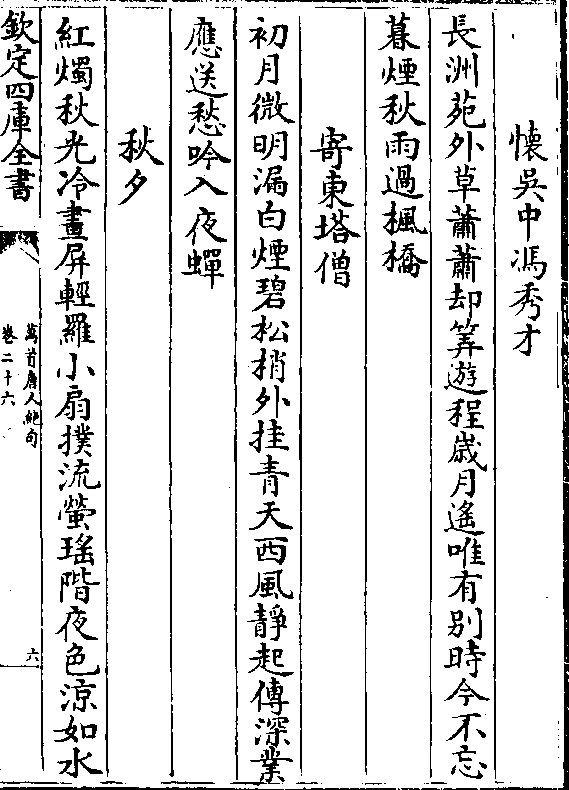 懷吳中馮秀才
長洲苑外草蕭蕭却筭遊程歲月遙唯有别時今不忘
暮煙秋雨過楓橋
寄東塔僧
初月微明漏白煙碧松梢外挂青天西風靜起傳深業
應送愁吟入夜蟬
秋夕
紅燭秋光冷畫屏輕羅小扇撲流螢瑤階夜色涼如水
欽定四庫全書
萬首唐人絶句
卷二十六
六